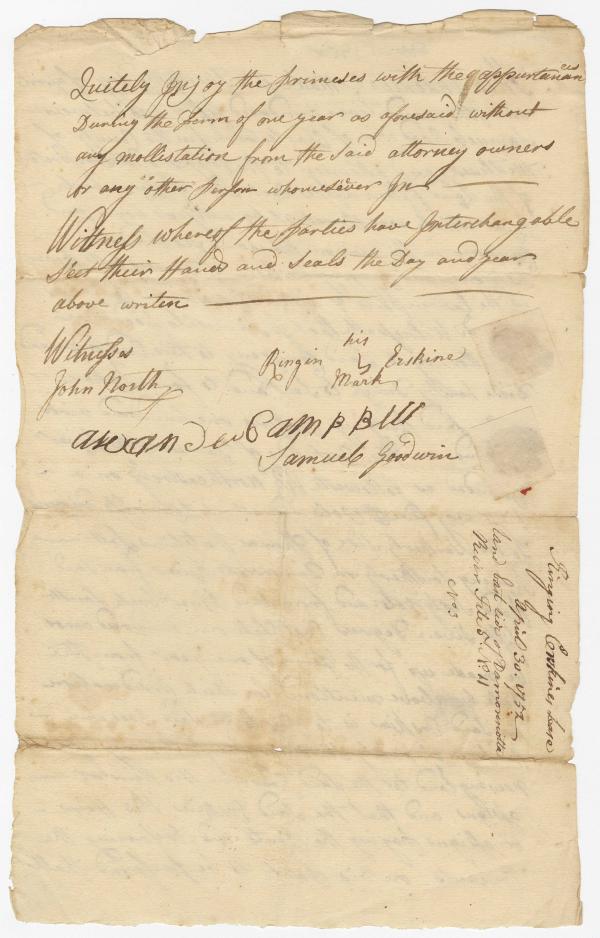 Quitely Injoy the primeses with the appurtanances
During the Term of one year as aforesaid without
any mollistation from the Said attorney owners
or any other Person whomesoever In
Wittness whereof the Parties have Interchangable
Seet their Hands and Seals the Day and year
above writen
Witnesses
John North
Ringin his Erskine
Mark
alexander CampBell
Samuel Goodwin
Ringing Erskines Lease
April 30. 1752
land East side of Damoriscotta
River File 5. No. 11
No. 3